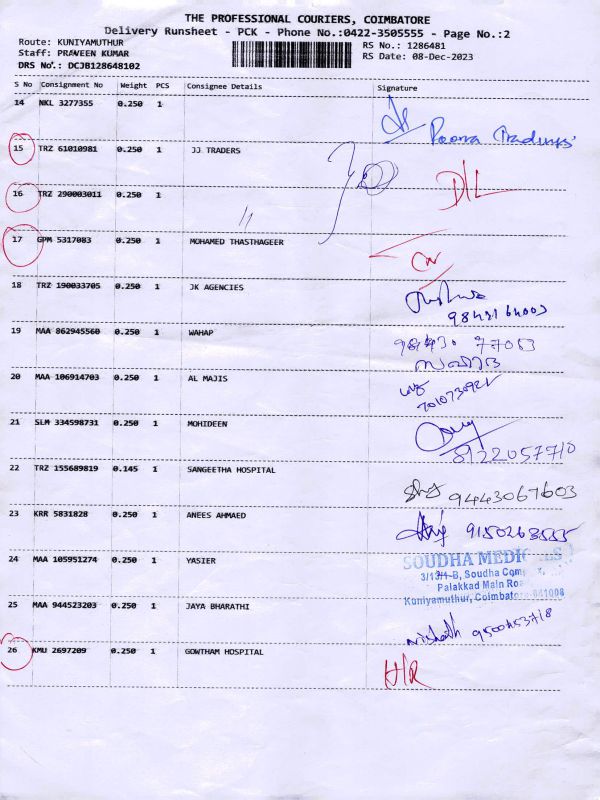 THE PROFESSIONAL COURIERS, COIMBATORE
Delivery Runsheet - PCK - Phone No.:0422-3505555 - Page No.:2
Route: KUNIYAMUTHUR
RS No.: 1286481
Staff: PRAVEEN KUMAR
RS Date: 08-Dec-2023
DRS No.: DCJB128648102
S No Consignment No Weight PCS Consignee Details Signature
14 NKL 3277355 0.250 1
Poorna Traders
15 TRZ 61010981 0.250 1 JJ TRADERS
16 TRZ 290003011 0.250 1
D/L
17 GPM 5317083 0.250 1 MOHAMED THASTHAGEER
18 TRZ 190033705 0.250 1 JK AGENCIES
19 MAA 862945560 0.250 1 WAHAP
20 MAA 106914703 0.250 1 AL MAJIS
21 SLM 334598731 0.250 1 MOHIDEEN
8122057710
22 TRZ 155689819 0.145 1 SANGEETHA HOSPITAL
9443067603
23 KRR 5831828 0.250 1 ANEES AHMAED
9150263555
24 MAA 105951274 0.250 1 YASIER
SOUDHA MEDIC LS
3/131-B, Soudha Com
Palakkad Main Roa
Kuniyamuthur, Coimbatore-641008
25 MAA 944523203 0.250 1 JAYA BHARATHI
26 KMU 2697209 0.250 1 GOWTHAM HOSPITAL
H/R